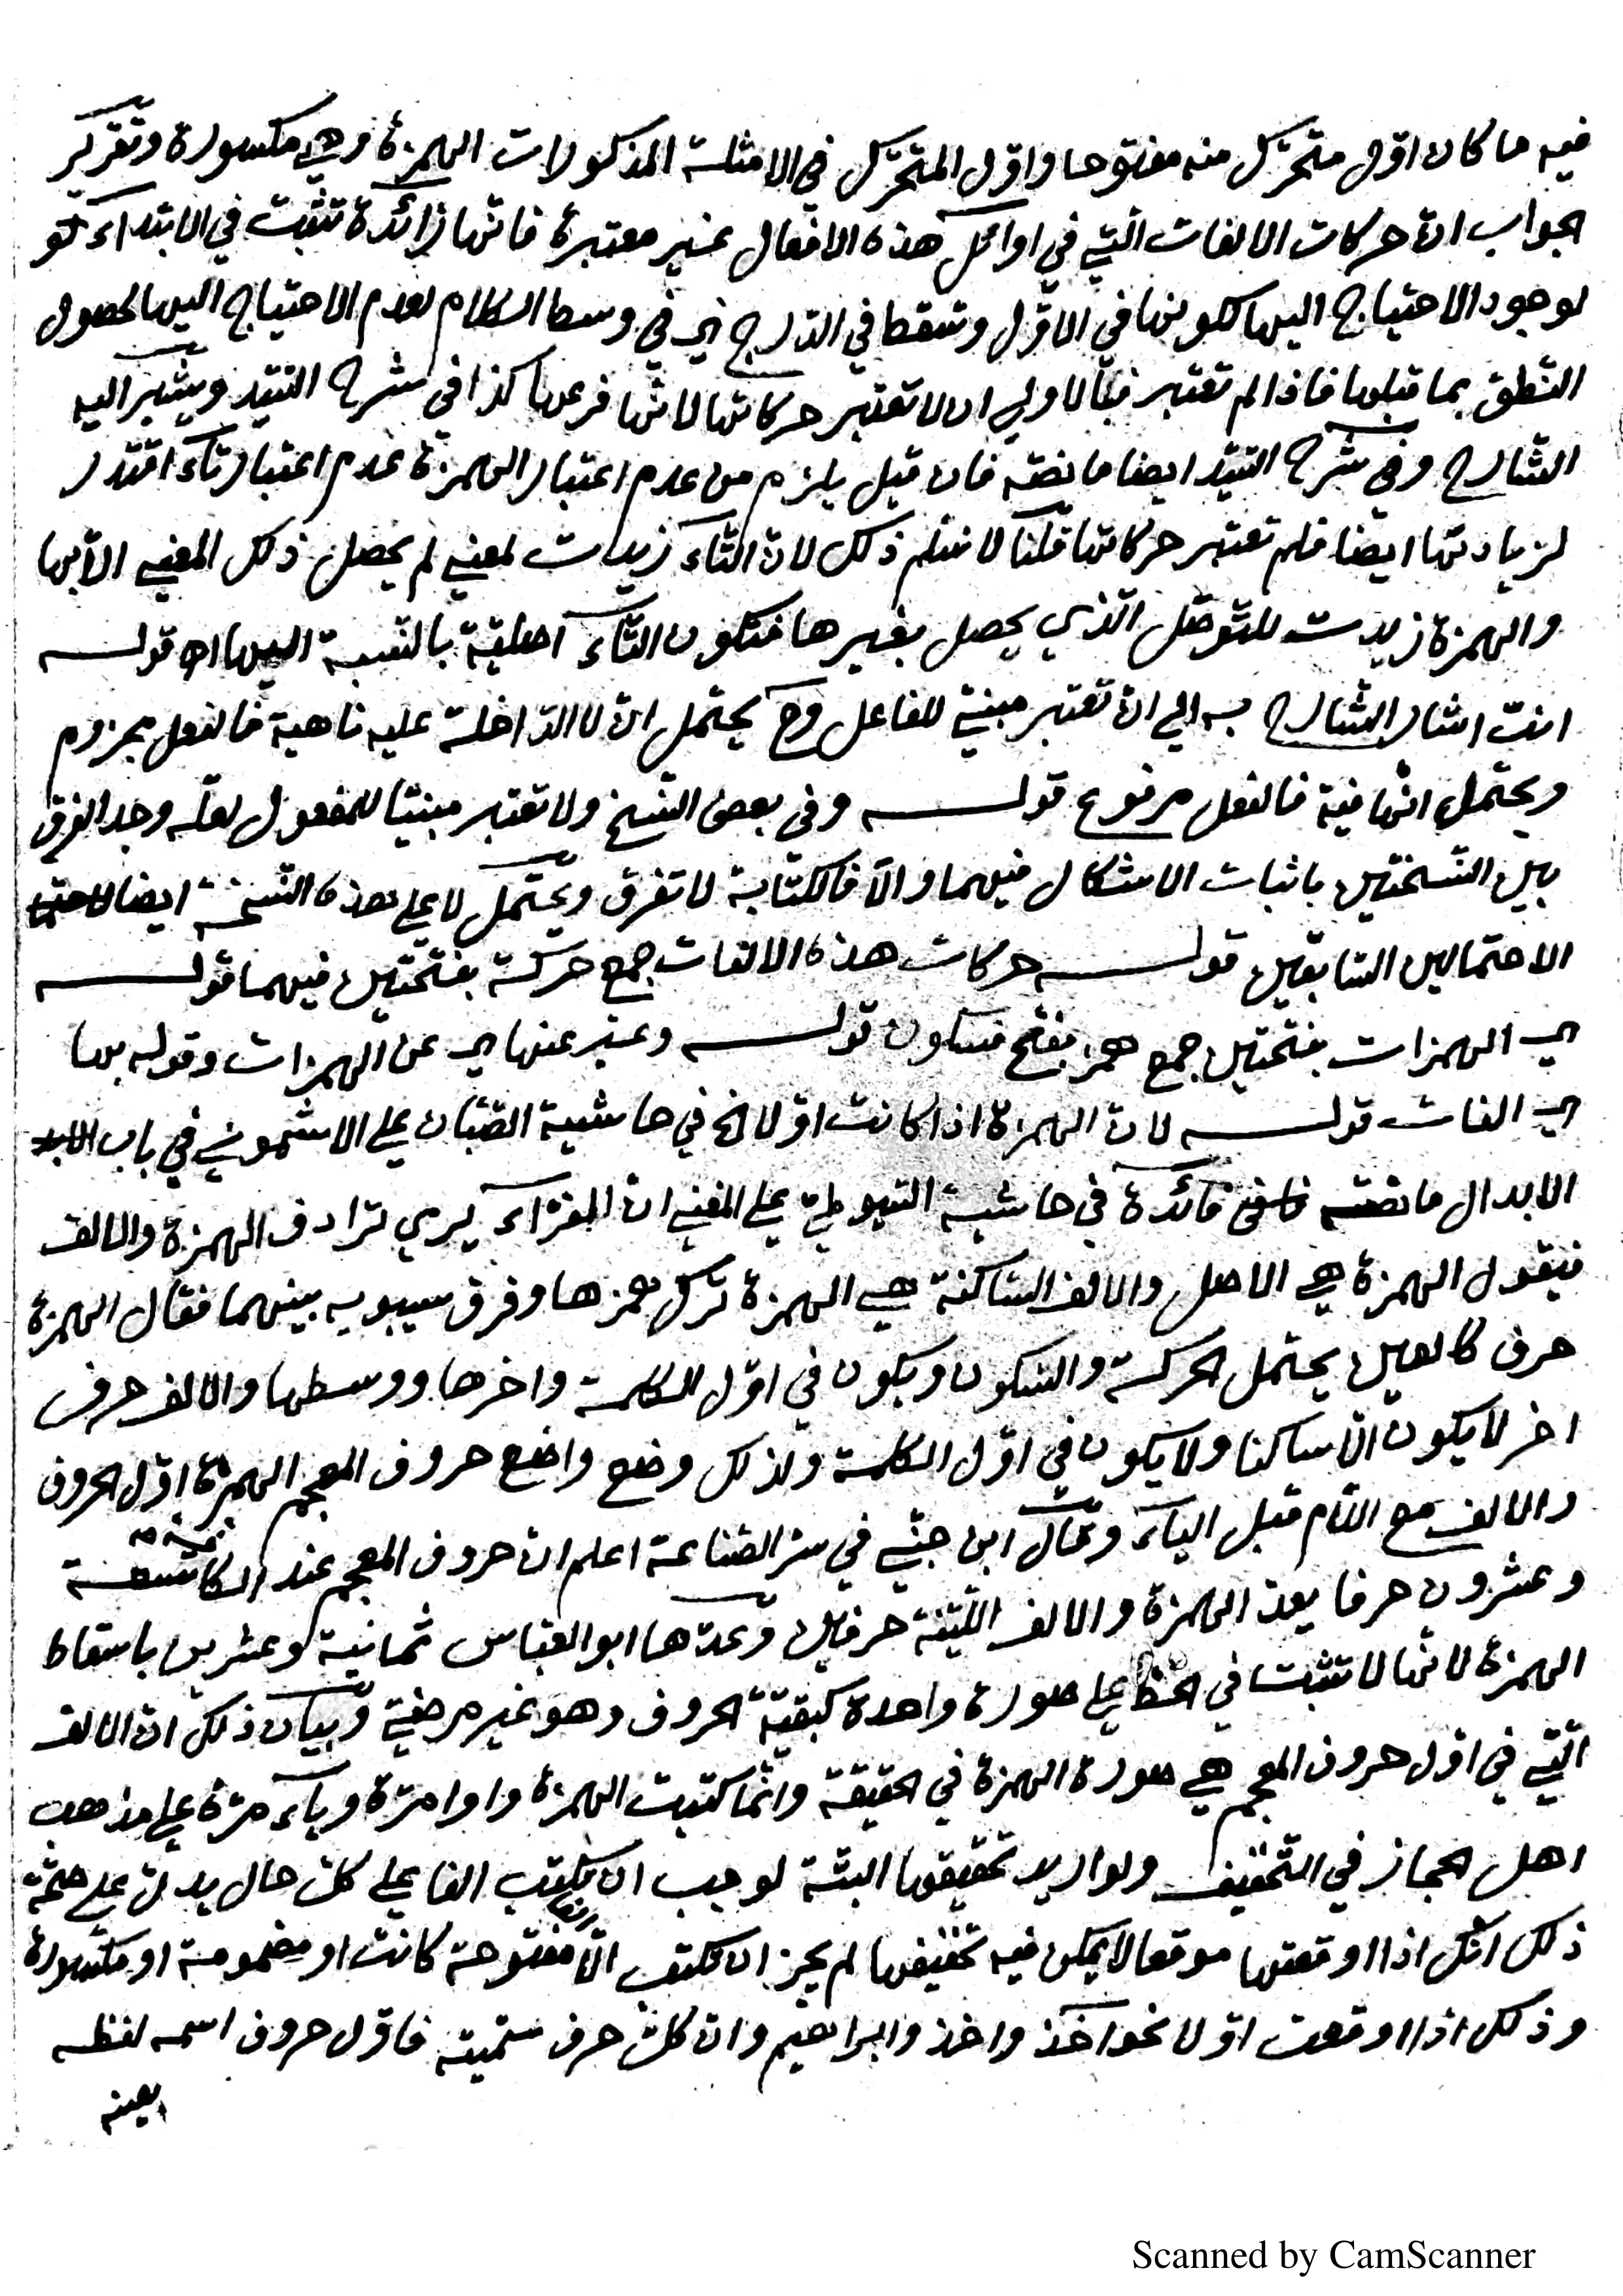 فيه ما كان اوّل متحرّك منه مفتوحا واوّل المتحرّك في الامثلة المذكورات الهمزة وهي مكسورة وتقرير
الجواب انّ حركات الالفات الّتي في اوائل هذه الافعال غير معتبرة فانّها زائدة تثبت في الابتداء
لوجود الاحتياج اليها لكونها في الاوّل وتسقط في الدّرج اي في وسط الكلام لعدم الاحتياج اليها لحصول
النّطق بما قبلها فاذا لم تعتبر فبالاولى ان لا تعتبر حركاتها لانّها فرعها كذا في شرح السّيّد ويشير اليه
الشّارح وفي شرح السّيّد ايضا ما نصّه فان قيل يلزم من عدم اعتبار الهمزة عدم اعتبار تاء اقتدر
لزيادتها ايضا فلم تعتبر حركاتها قلنا لا نسّلم ذلك لانّ التّاء زيدت لمعنى لم يحصل ذلك المعنى الّا بها
والهمزة زيدت للتّوصّل الّذي يحصل بغيرها فتكون التّاء اصليّة بالنّسبة اليها اه قولـــه
انت اشار الشّارح به الى ان تعتبر مبنيّ للفاعل وح يحتمل انّ لا الدّاخلة عليه ناهية فالفعل مجزوم
ويحتمل انّها نافية فالفعل مرفوع قولـــه وفي بعض النّسخ ولا تعتبر مبنيّا للمفعول لعلّه وجد الفرق
بين النّسختين باثبات الاشكال فيهما والّا فالكتابة لا تفرق ويحتمل لا على هذه النّسخة ايضا
الاحتمالين السّابقين قولـــه حركات هذه الالفات جمع حركة بفتحتين فيهما قولـــه
اي الهمزات بفتحتين جمع همز بفتح فسكون قولـــه وعبّر عنها اي عن الهمزات وقوله بها
اي الفات قولـــه لانّ الهمزة اذا كانت اوّلا الخ في حاشية الصّبّان على الاشموني في باب
الابدال ما نصّه فائدة في حاشية السّيوطيّ على المغني انّ الفرّاء يرى ترادف الهمزة والالف
فيقول الهمزة هي الاصل والالف السّاكنة هي الهمزة ترك همزها وفرق سيبويه بينهما فقال الهمزة
حرف كالعين يحتمل الحركة والسّكون ويكون في اوّل الكلمة واخرها ووسطها والالف حرف
اخر لا يكون الّا ساكنا ولا يكون في اوّل الكلمة ولذلك وضع واضع حروف المعجم الهمزة اوّل الحروف
والالف مع اللّام قبل الياء وقال ابن جنّي في سرّ الصّناعة اعلم انّ حروف المعجم عند الكافّة تسعة
وعشرون حرفا بعدّ الهمزة والالف اللّيّنة حرفين وعدّها ابو العبّاس ثمانية وعشرين باسقاط
الهمزة لانّها لا تثبت في الخطّ على صورة واحدة كبقيّة الحروف وهو غير مرضيّ وبيان ذلك انّ الالف
الّتي في اوّل حروف المعجم هي صورة الهمزة في الحقيقة وانّما كتبت الهمزة واوا مرّة وياء مرّة على مذهب
اهل الحجاز في التّخفيف ولو اريد تحقيقها البتّة لوجب ان تكتب الفا على كلّ حال يدلّ على صحّة
ذلك انّك اذا اوقعتها موقعا لا يمكن فيه تخفيفها لم يجز ان تكتب الّا الفا مفتوحة كانت او مضمومة او مكسورة
وذلك اذا وقعت اوّلا نحو اخذ واخذ وابراهيم وانّ كلّ حرف سمّيته فاوّل حروف اسمه لفظه
بعينه
Scanned by CamScanner